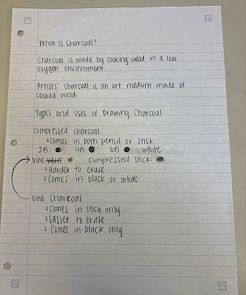 What is Charcoal?
Charcoal is made by cooking wood in a low
oxygen environment.
Artists' Charcoal is an art medium made of
cooked wood.
Types and Uses of Drawing Charcoal
Compressed Charcoal
Comes in both pencil or stick
2B: 4B: 6B: white
Vine compressed stick:
Harder to erase
Comes in black or white
Vine Charcoal
Comes in stick only
Easier to erase
Comes in black only